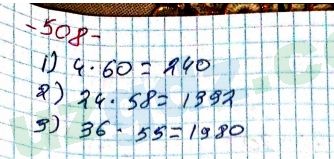 -508-
1) 4·60=240
2) 24·58=1392
3) 36·55=1980